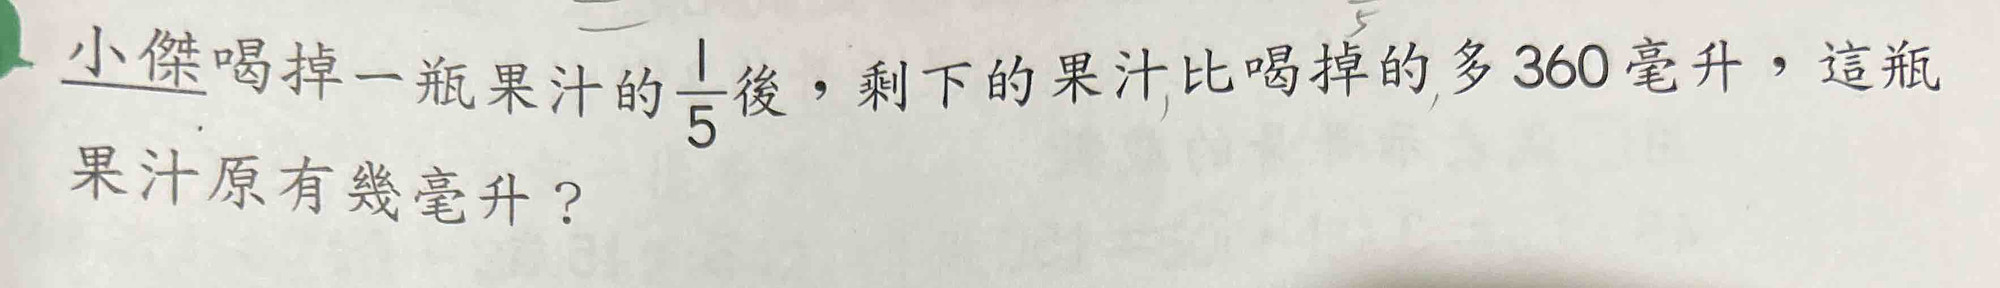 小傑喝掉一瓶果汁的1/5後，剩下的果汁比喝掉的多360毫升，這瓶
果汁原有幾毫升？